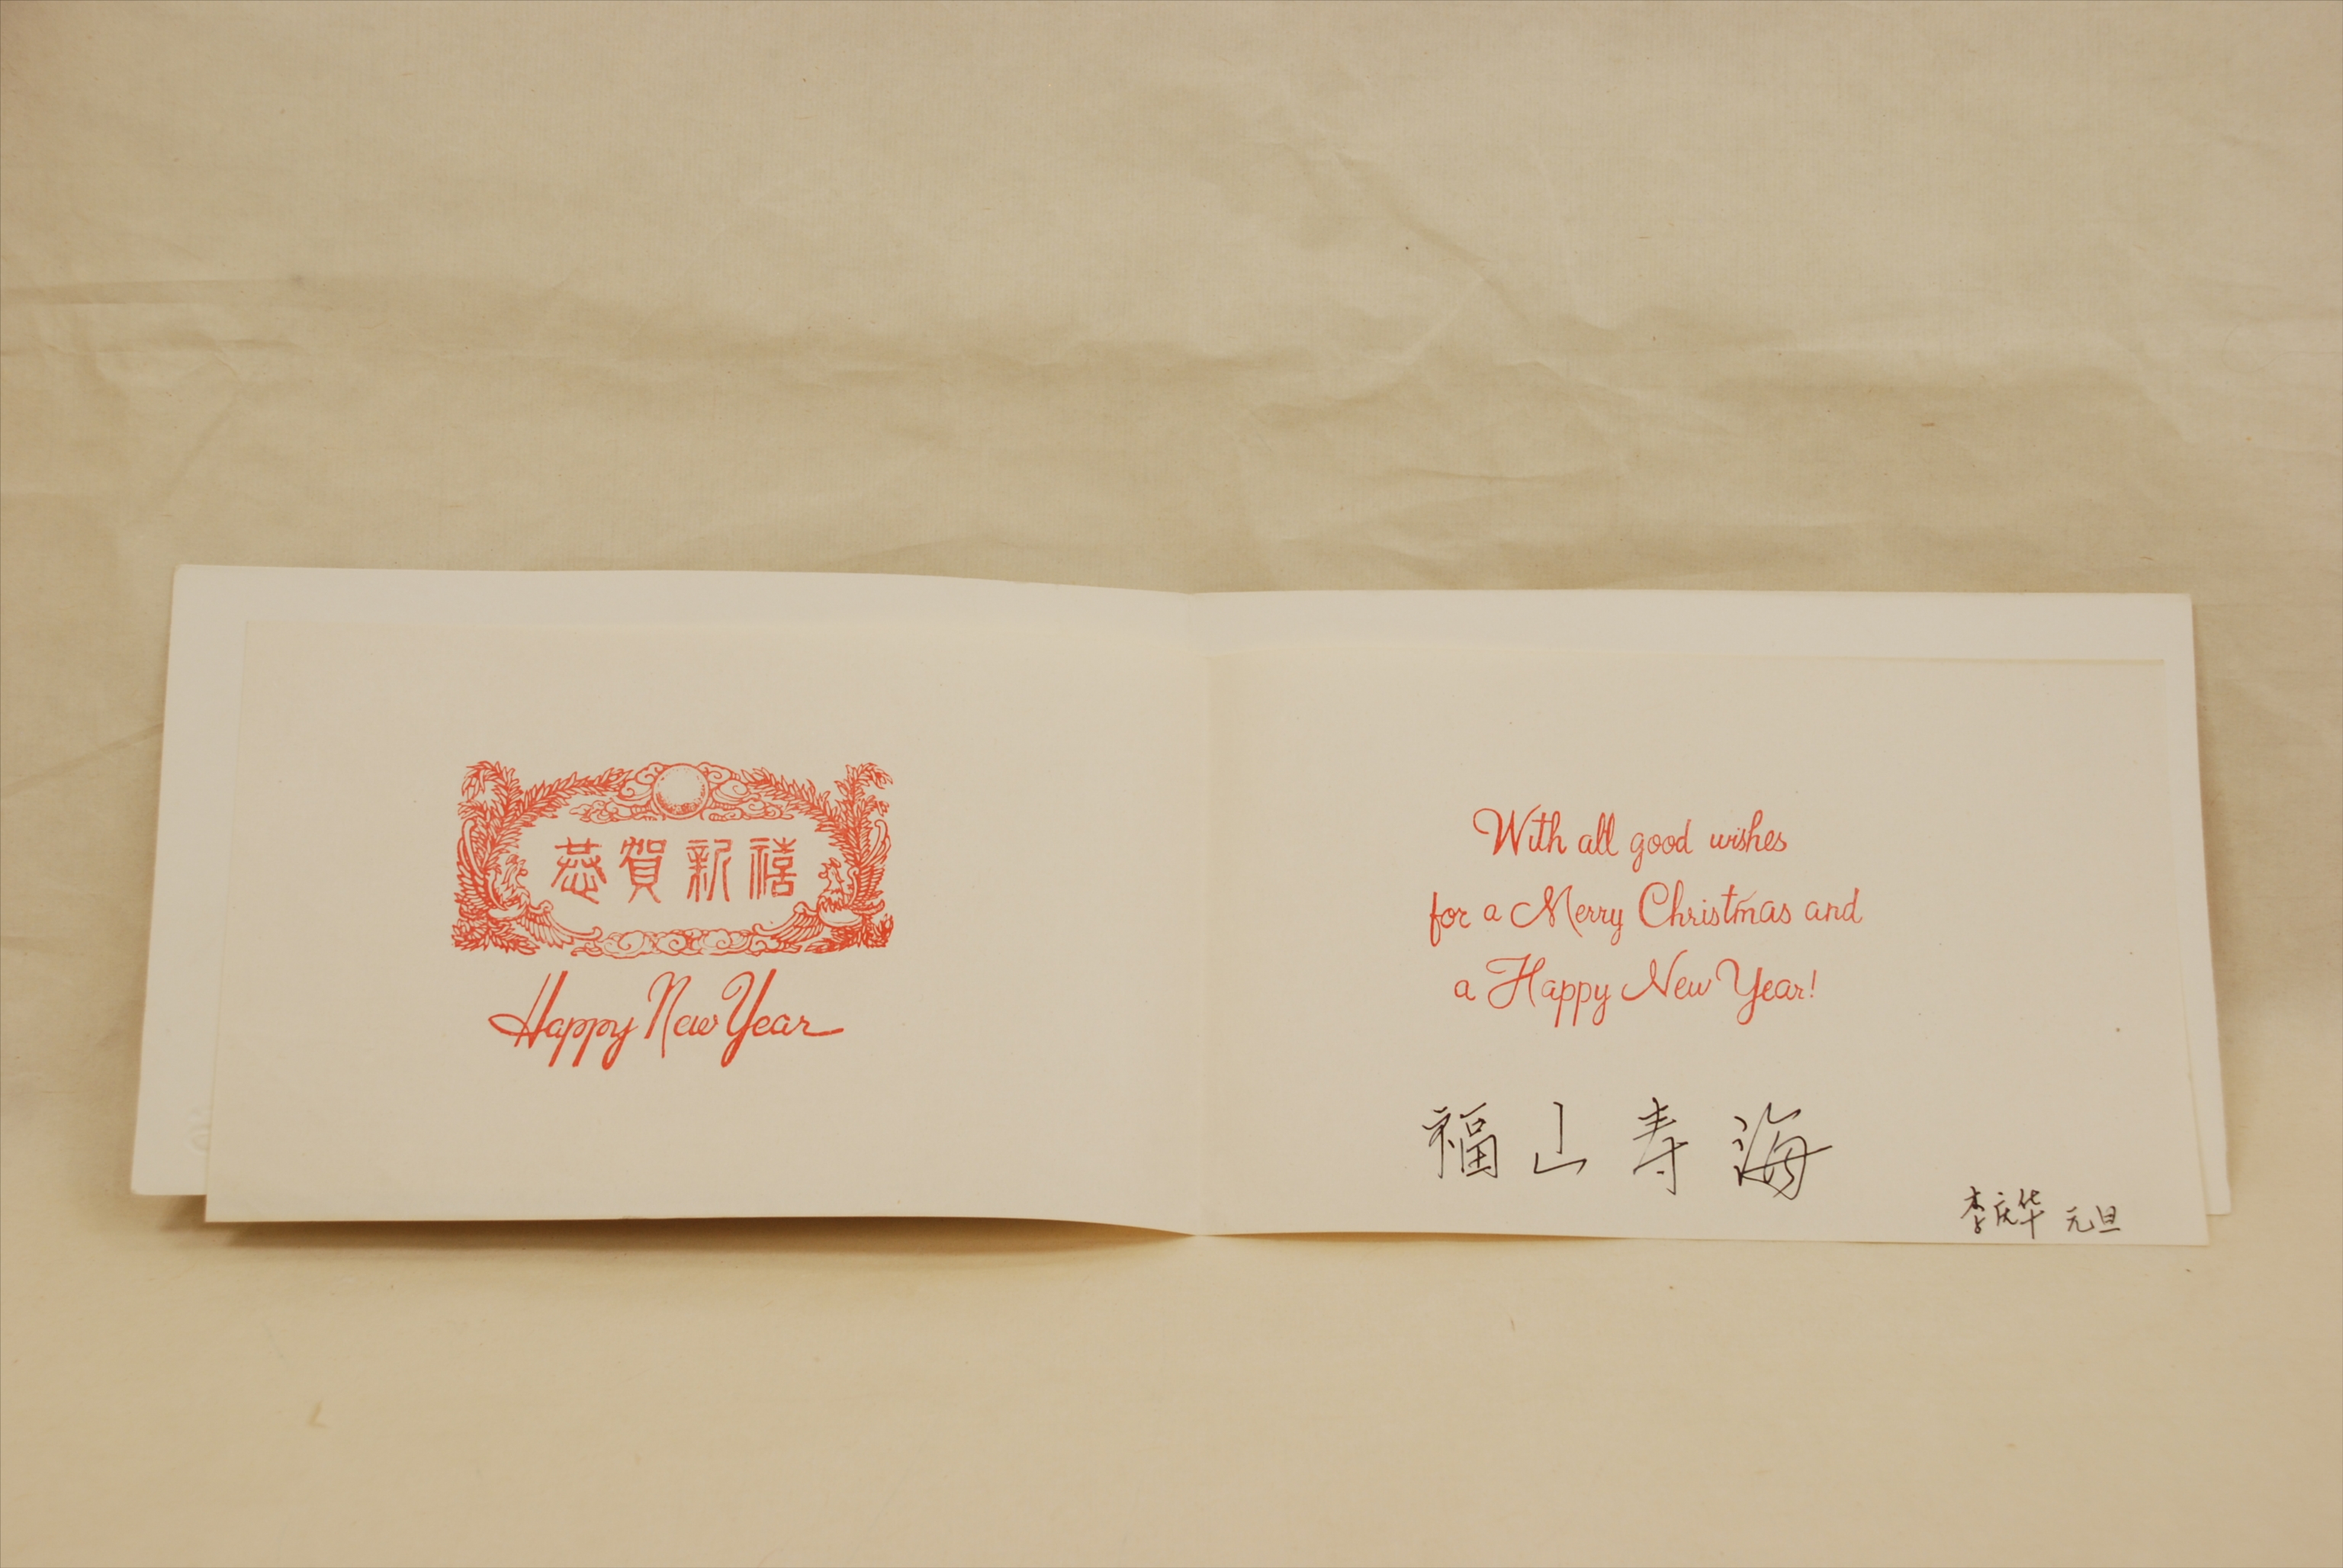 恭賀新禧
Happy New Year
With all good wishes
for a Merry Christmas and
a Happy New Year!
福山寿海
李庆华 元旦